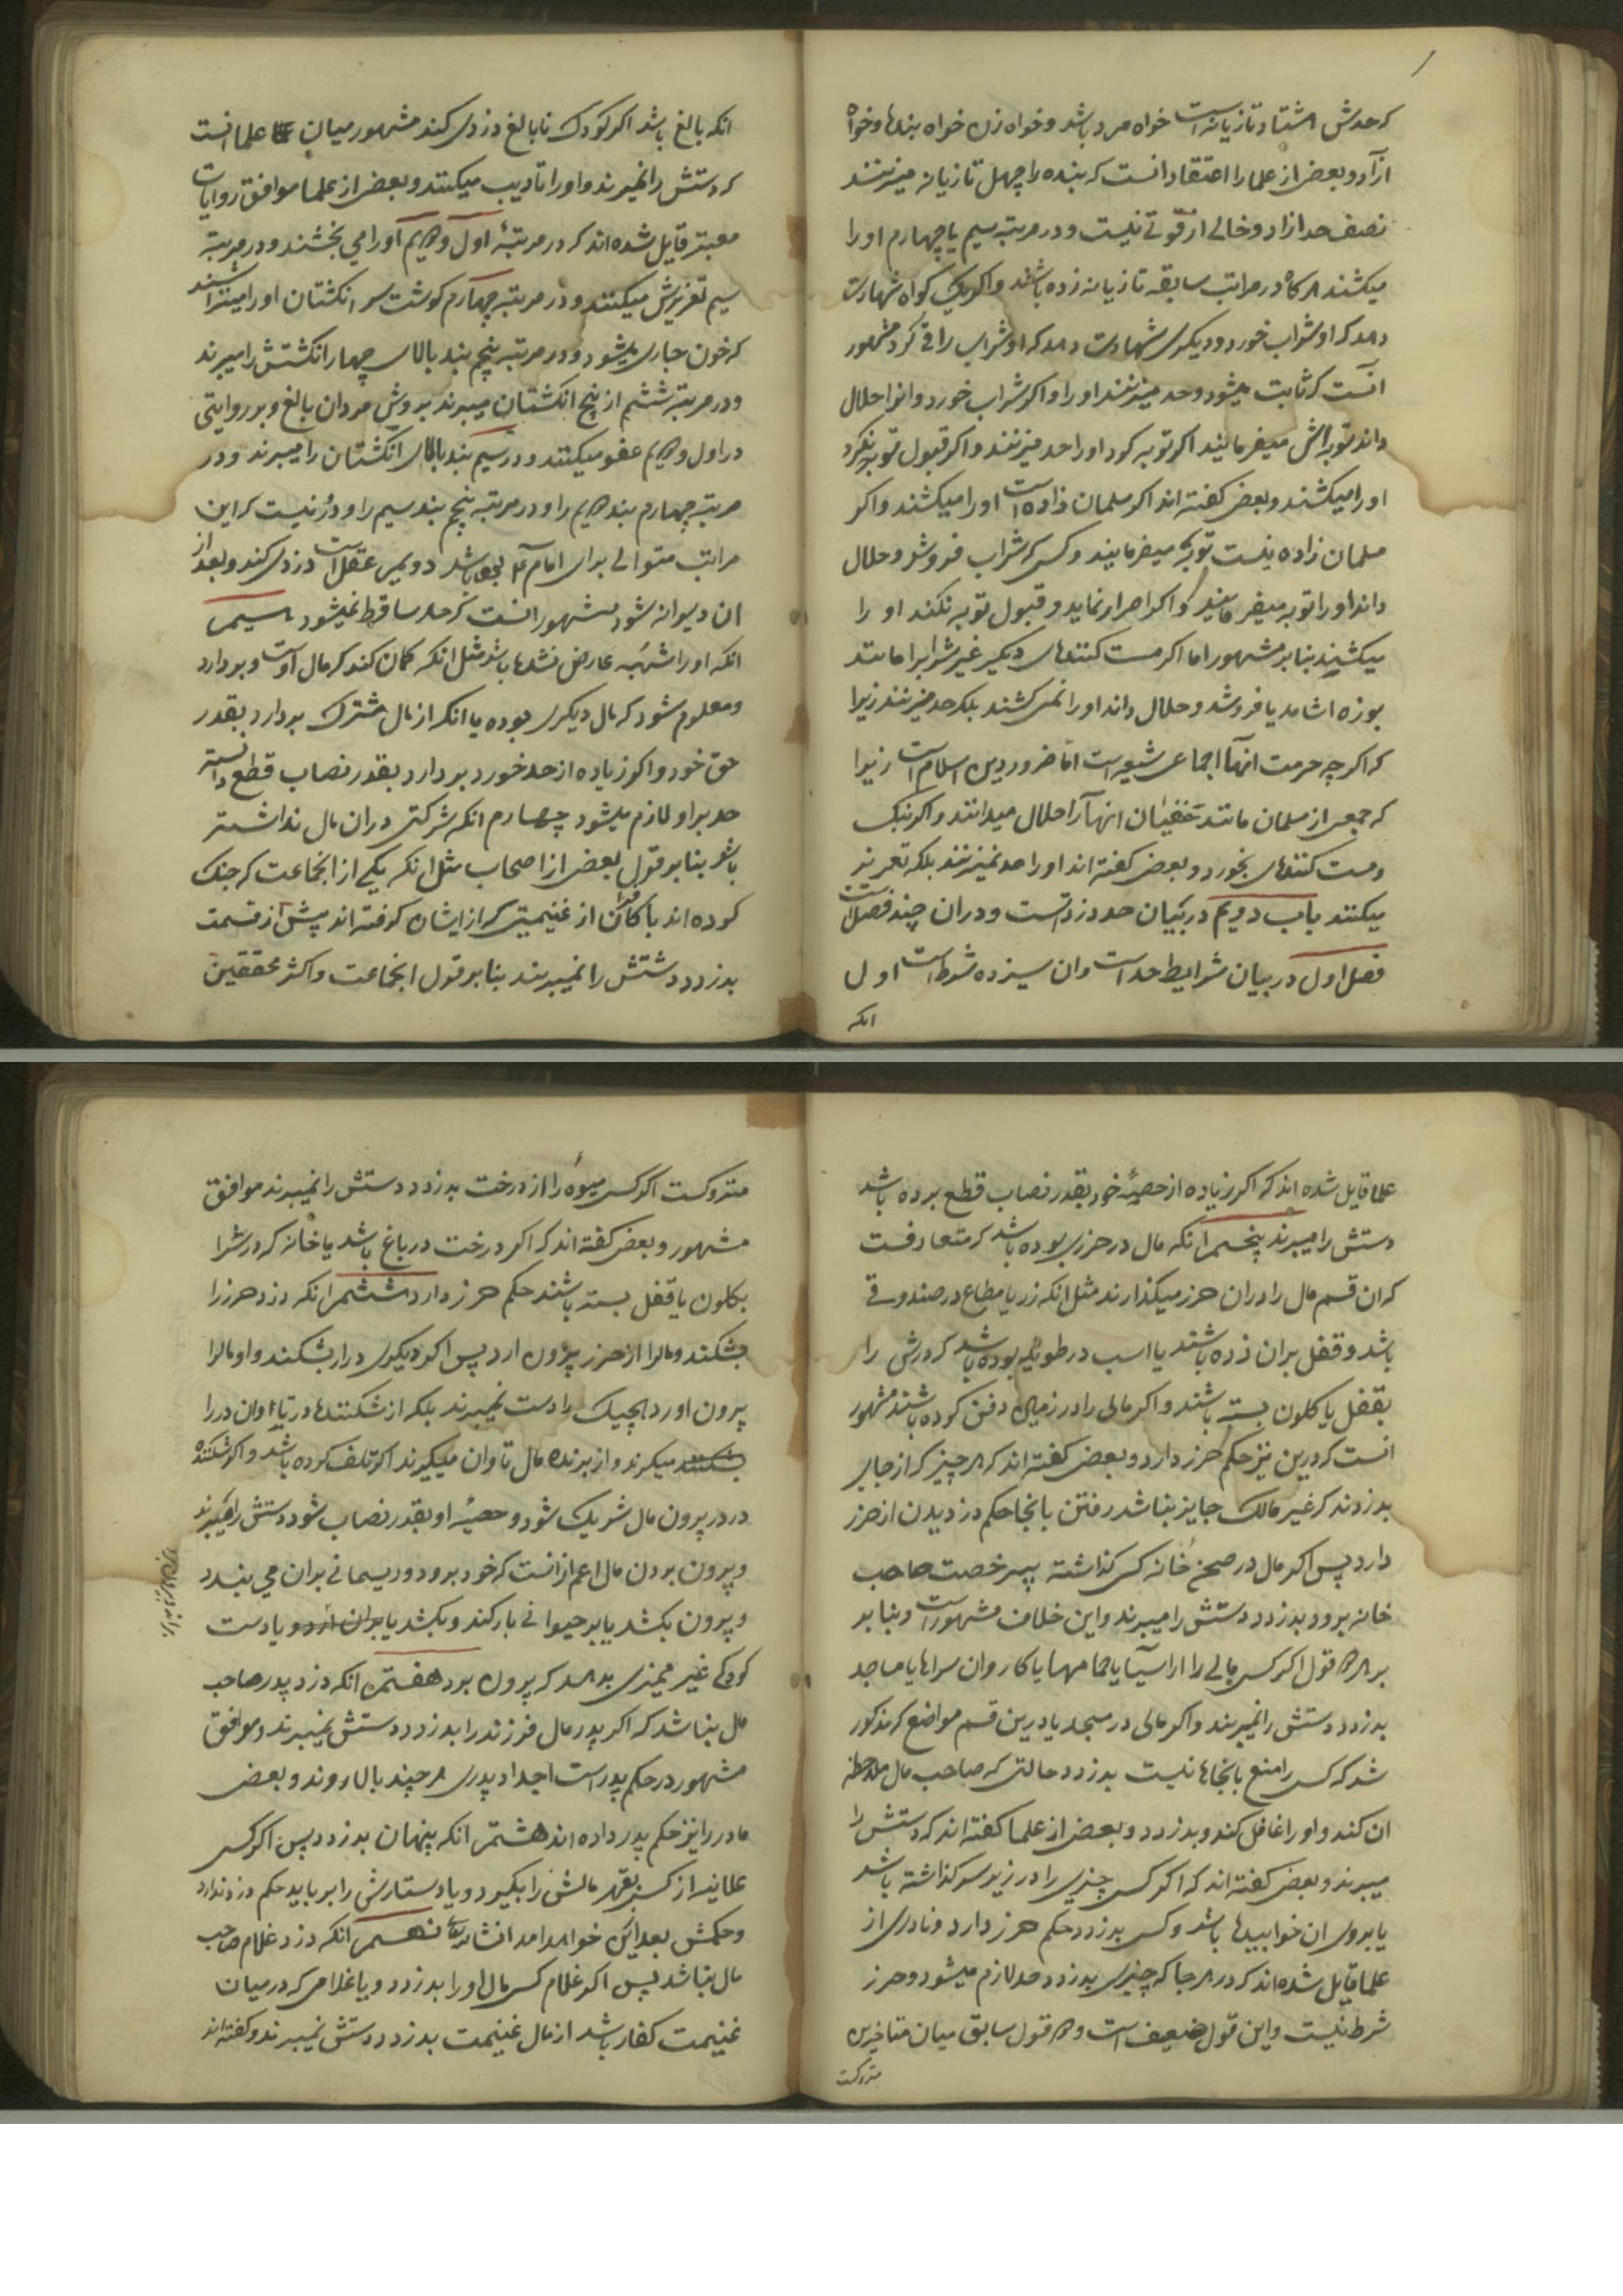 که حدش هشتاد تازیانه است خواه مرد باشد و خواه زن خواه بنده و خواه
ازآد و بعض از علما را اعتقاد انست که بنده را چهل تازیانه میزنند
نصف حد ازاد و خالی از قوتی نیست و در مرتبه سیم یا چهارم او را
میکشند هرگاه در مراتب سابقه تازیانه زده باشند و اکر یک کواه شهادت
دهد که او شراب خورد و دیکری شهادت دهد که او شراب را قی کرد مشهور
انست که ثابت میشود و حد میزنند او را و اکر شراب خورد و انرا حلال
داند توبه اش میفرمایند اکر توبه کرد او را حد میزنند و اکر قبول توبه نکرد
او را میکشند و بعض کفته اند اکر مسلمان زاده است او را میکشند و اکر
مسلمان زاده نیست توبه میفرمایند و کسی که شراب فروشد و حلال
داند او را توبه میفرمایند و اکر اصرار نماید و قبول توبه نکند او را
میکشند بنا بر مشهور اما اکر مست کننده های دیکر غیر شراب را مانند
بوزه اشامد یا فروشد و حلال داند او را نمی کشند بلکه حد میزنند زیرا
که اکر چه حرمت انها اجماعی شیعه است اما ضرور دین اسلام است زیرا
که جمعی از مسلمان مانند حنفیان انها را حلال میدانند و اکر بنک
و مست کننده های بخورد و بعض کفته اند او را حد نمیزنند بلکه تعزیر
میکنند باب دویم در بیان حد دزد است و دران چند فصل است
فصل اول در بیان شرایط حد است و ان سیزده شرط است اول
انکه
انکه بالغ باشد اکر کودک نا بالغ دزدی کند مشهور میان علما انست
که دستش را نمیبرند و او را تادیب میکنند و بعض از علما موافق روایات
معبتر قایل شده اند که در مرتبهٔ اول و دویم او را می بخشند و در مرتبه
سیم تعزیرش میکنند و در مرتبه چهارم کوشت سر انکشتان او را میتراشند
که خون جاری میشود و در مرتبه پنجم بند بالای چهار انکشتش را میبرند
و در مرتبه ششم از پنج انکشتان میبرند بروش مردان بالغ و بر روایتی
در اول و دویم عفو میکنند و در سیم بند بالای انکشتان را میبرند و در
مرتبه چهارم بند دویم را و در مرتبه پنجم بند سیم را و دور نیست که این
مراتب متوالی برای امام باشد دویم عقل است دزدی کند و بعد از
ان دیوانه شود مشهور انست که حد ساقط نمیشود سیم
انکه او را شبهه عارض نشده باشد مثل انکه کمان کند که مال اوست و بردارد
و معلوم شود که مال دیکری بوده یا انکه از مال مشترک بردارد بقدر
حق خود و اکر زیاده از حد خورد بردارد بقدر نصاب قطع دانسته
حد بر او لازم میشود چهارم انکه شرکتی دران مال نداشته
باشد بنا بر قول بعض از اصحاب مثل انکه یکی از انجماعت که جنک
کرده اند با کافران از غنیمتی که از ایشان کرفته اند پیش از قسمت
بدزدد دستش را نمیبرند بنا بر قول انجماعت و اکثر محققین
علما قایل شده اند که اکر زیاده از حصهٔ خود بقدر نصاب قطع برده باشد
دستش را میبرند پنجم انکه مال در حرزی بوده باشد که متعارفست
که ان قسم مال را دران حرز میکذارند مثل انکه زر یا مطاع در صندوقی
باشد و قفل بران زده باشند یا اسب در طویله بوده باشد که درش را
بقفل یا کلون بسته باشند و اکر مالی را در زمین دفن کرده باشند مشهور
انست که درین نیز حکم حرز دارد و بعض کفته اند که هر چیز که از جایی
بدزدند که غیر مالک جایز نباشد رفتن بانجا حکم دزدیدن از حرز
دارد پس اکر مال در صحن خانه کسی کذاشته بیرخصت صاحب
خانه برود بدزدد دستش را میبرند و این خلاف مشهور است و بنا بر
هر دو قول اکر کسی مالی را از اسیا یا حمامها یا کاروان سراها یا مساجد
بدزدد دستش را نمیبرند و اکر مالی در مسجد یا درین قسم مواضع که مذکور
شد که کسی را منع بانجاها نیست بدزدد حالتی که صاحب مال ملاحظه
ان کند و او را غافل کند و بدزدد و بعض از علما کفته اند که دستش را
میبرند و بعض کفته اند که اکر کسی چیزی را در زیر سر کذاشته باشد
یا بروی ان خوابیده باشد و کسی بدزدد حکم حرز دارد و نادری از
علما قایل شده اند که در هر جا که چیزی بدزدد حد لازم میشود و حرز
شرط نیست و این قول ضعیف است و دو قول سابق میان متاخرین
متروکست
متروکست اکر کسی میوهٔ را از درخت بدزدد دستش را نمیبرند موافق
مشهور و بعض کفته اند که اکر درخت در باغ باشد یا خانه که درش را
بکلون یا قفل بسته باشند حکم حرز دارد ششم انکه دزد حرز را
بشکند و مال را از حرز بیرون ارد پس اکر دیکری در را بشکند و او مال را
بیرون اورد هیچیک را دست نمیبرند بلکه از شکننده در تاوان در را
میکیرند و از برنده مال تاوان میکیرند اکر تلف کرده باشد و اکر شکننده
در در بیرون مال شریک شود و حصهٔ او بقدر نصاب شود دستش را میبرند
و بیرون بردن مال اعم از انست که خود برود و ریسمانی بران می بندد
و بیرون بکشد یا بر حیوانی بار کند و بکشد یا بران و یا دست
کودکی غیر ممیزی بدهد که بیرون برد هفتم انکه دزد پدر صاحب
مال نباشد که اکر پدر مال فرزند را بدزدد دستش نمیبرند و موافق
مشهور در حکم پدر است اجداد پدری هر چند بالا روند و بعض
مادر را نیز حکم پدر داده اند هشتم انکه پنهان بدزدد پس اکر کسی
علانیه از کسی بقهر مالش را بکیرد و یا دستارش را برباید حکم دزد ندارد
و حکمش بعد ازین خواهد امد انشاء الله نهم انکه دزد غلام صاحب
مال نباشد پس اکر غلام کسی مال او را بدزدد و یا غلامی که در میان
غنیمت کفار باشد از مال غنیمت بدزدد دستش نمیبرند و کفته اند